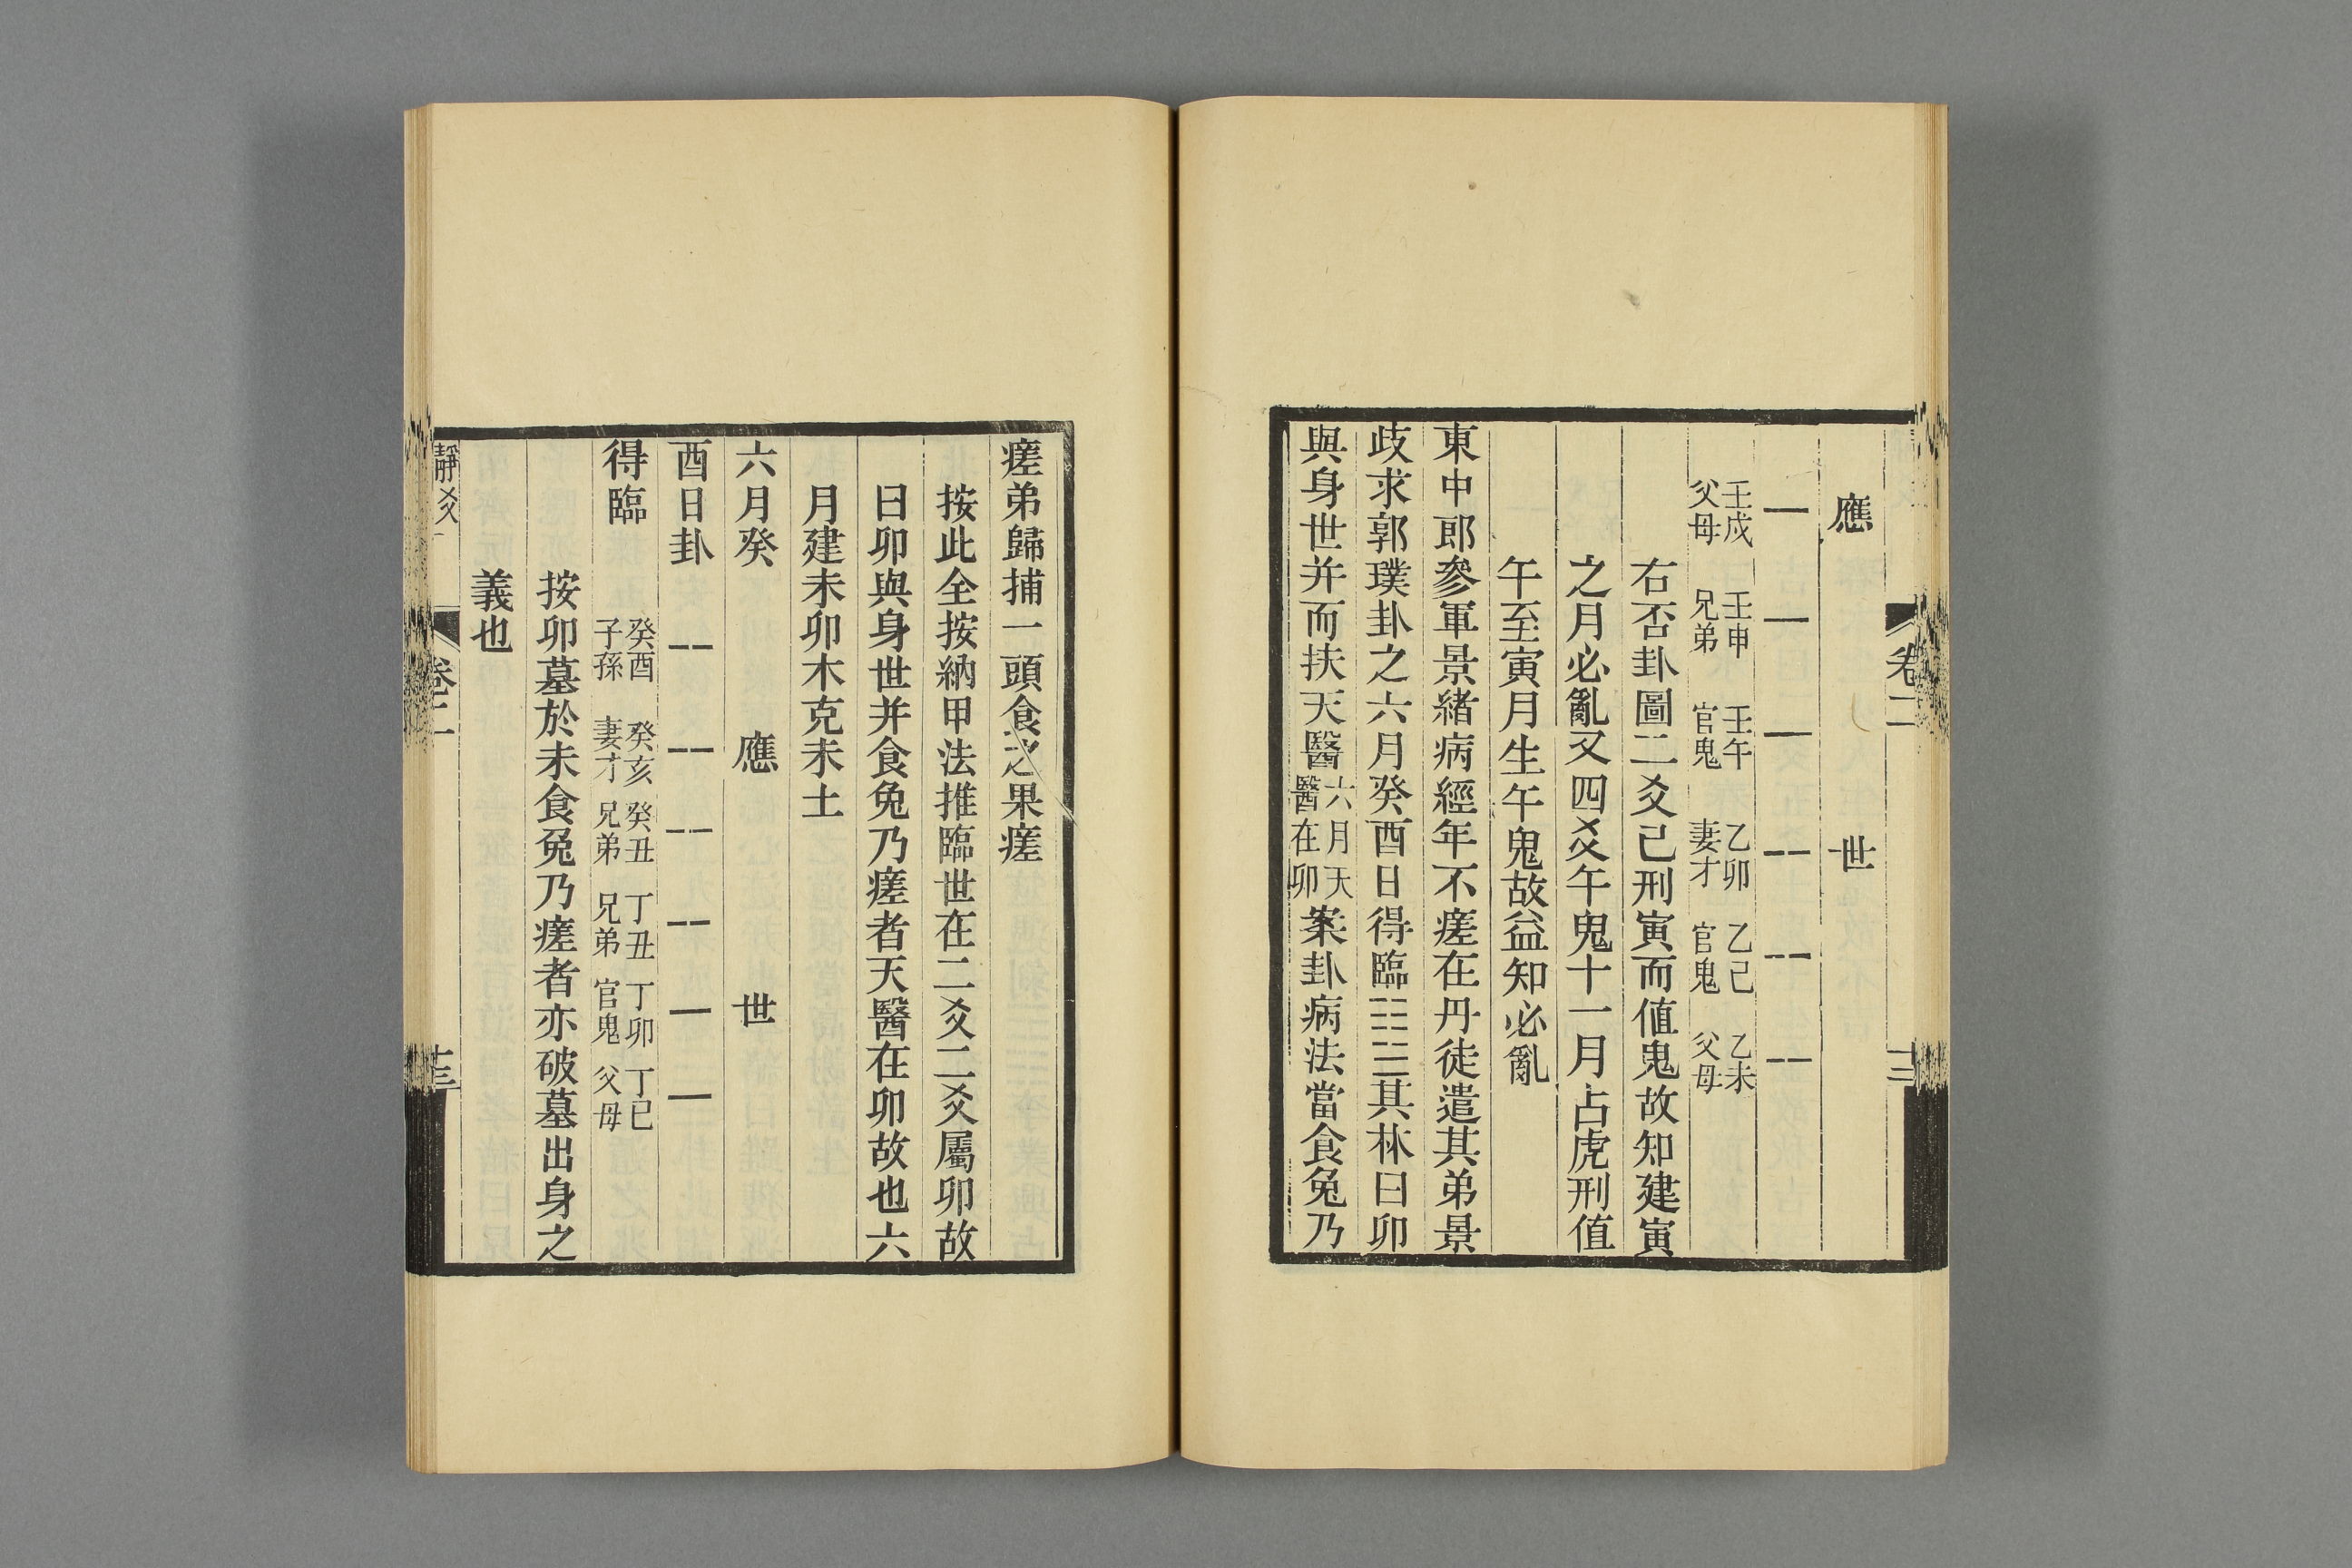 卷二
應　世
壬戌　壬申　壬午　乙卯　乙巳　乙未
父母　兄弟　官鬼　妻才　官鬼　父母
右否卦圖二爻已刑寅而值鬼故知建寅
之月必亂又四爻午鬼十一月占虎刑值
午至寅月生午鬼故益知必亂
東中郎參軍景緒病經年不瘥在丹徒遣其弟景
歧求郭璞卦之六月癸酉日得臨䷒其林曰卯
與身世并而扶天醫六月天醫在卯案卦病法當食兔乃
瘥弟歸捕一頭食之果瘥
按此全按納甲法推臨世在二爻二爻屬卯故
曰卯與身世并食兔乃瘥者天醫在卯故也六
月建未卯木克未土
六月癸　應　世
酉日卦
得臨
癸酉　癸亥　癸丑　丁丑　丁卯　丁巳
子孫　妻才　兄弟　兄弟　官鬼　父母
按卯墓於未食兔乃瘥者亦破墓出身之
義也
靜爻
卷二
十三